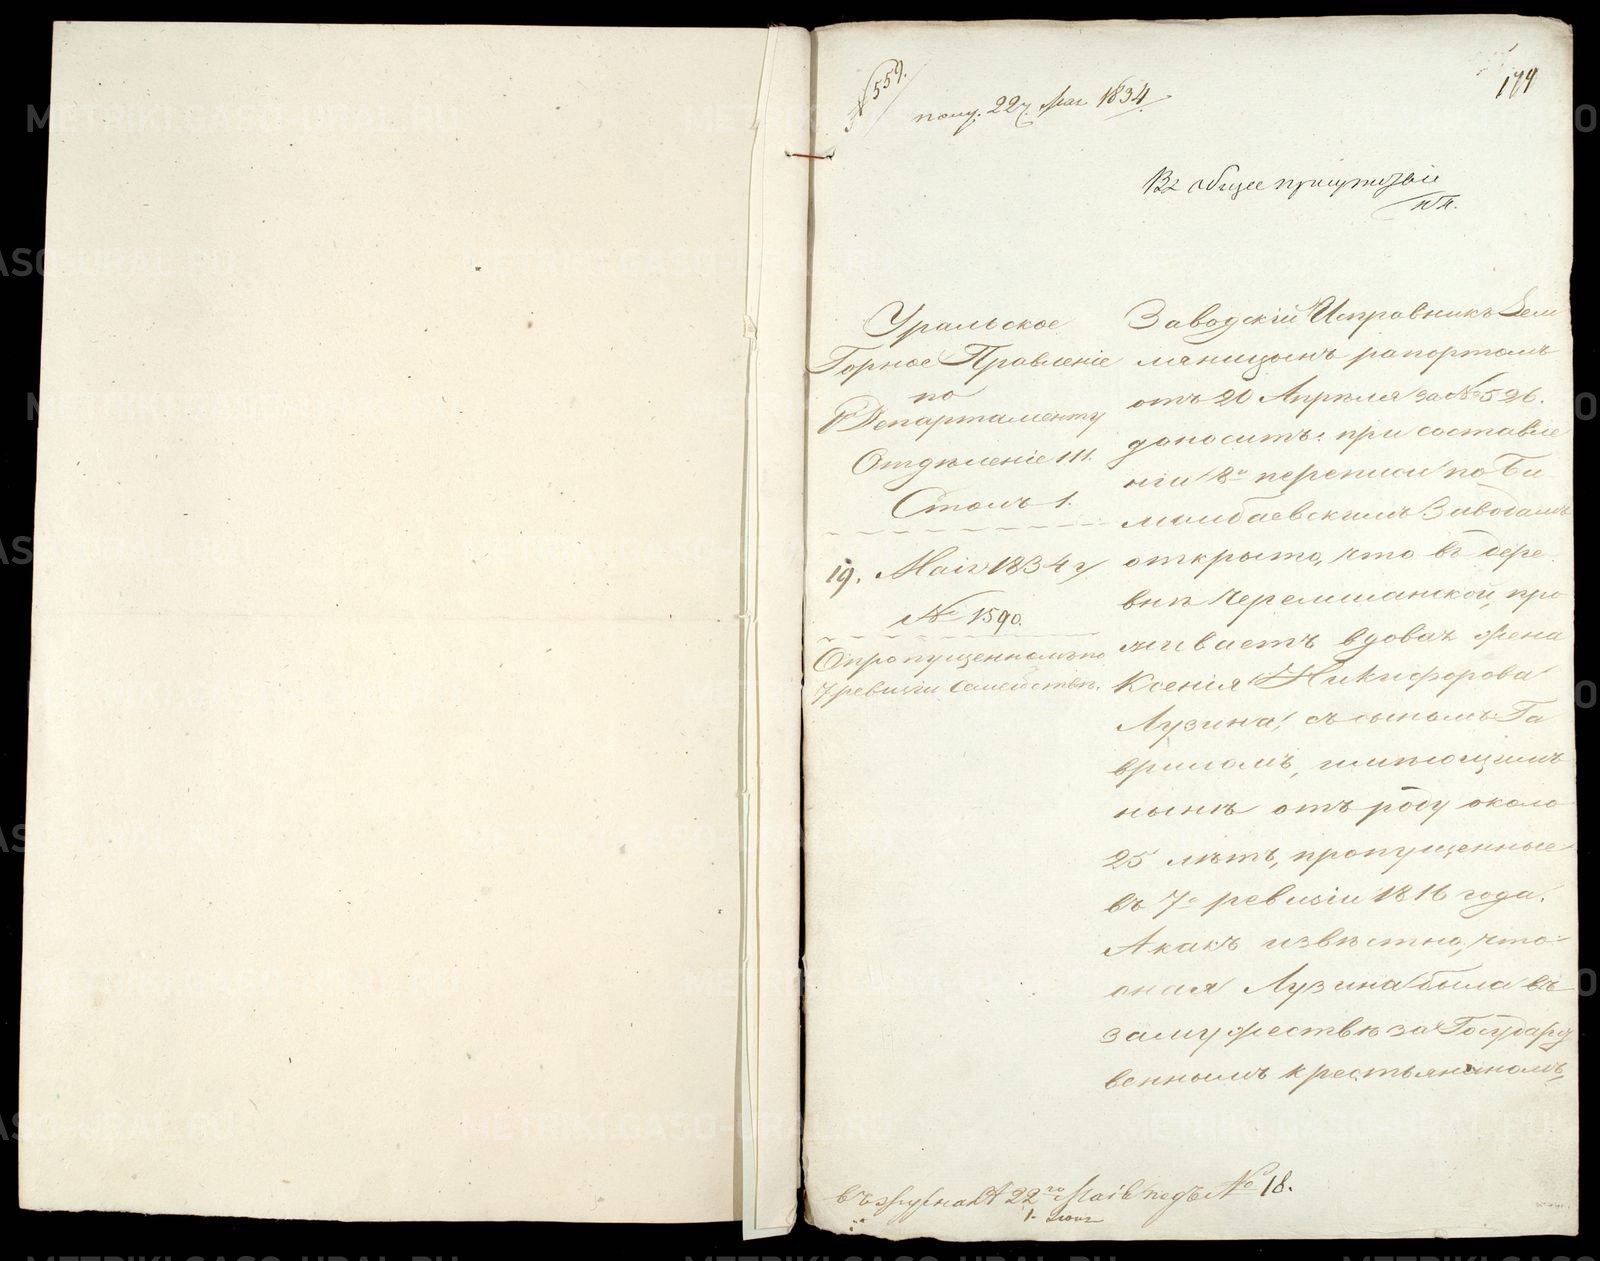 № 559.
174
полу. 22 Мая 1834
Въ общее присутствіе
Уральское
Горное Правленіе
по
Департаменту
Отдѣленіе III.
Столъ 1.
19. Маія 1834 г
№ 1590.
О пропущенномъ по
7 ревизіи семействѣ.
Заводскій Исправникъ Зем
ляницынъ рапортомъ
отъ 20 Апрѣля за № 526.
доноситъ: при составле
ніи 8й переписи по Би
лимбаевскимъ Заводамъ
открыто, что въ дере
внѣ Черемшанской, про
живаетъ вдовая жена
Ксенія Никифорова
Лузина, съ сыномъ Га
вриломъ, имѣющимъ
нынѣ отъ роду около
25 лѣтъ, пропущенные
въ 7й ревизіи 1816 года.
А какъ извѣстно, что
оная Лузина была въ
замужествѣ за Государ
веннымъ крестьяниномъ,
въ журналѣ 22го Маія подъ № 18.
METRIKI.GASO-URAL.RU